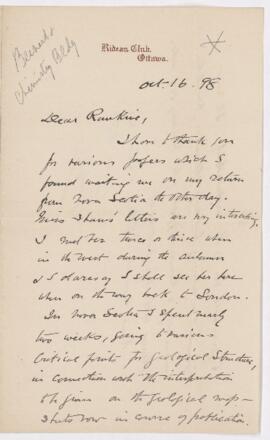 Rideau Club,
Ottawa.
Chemistry Bldg
Oct. 16. 98
Dear Rankine,
I have to thank you
for various papers which I
found waiting me on my return
from Nova Scotia the other day.
Miss Shaw's letters are very interesting,
I met her twice or thrice when
in the West during the autumn
& I daresay I shall see her here
when on the way back to London.
In Nova Scotia I spent nearly
two weeks, going to various
Critical points for geological structure,
in connection with the interpretation
to be given on the geological maps –
sheets now in course of publication.